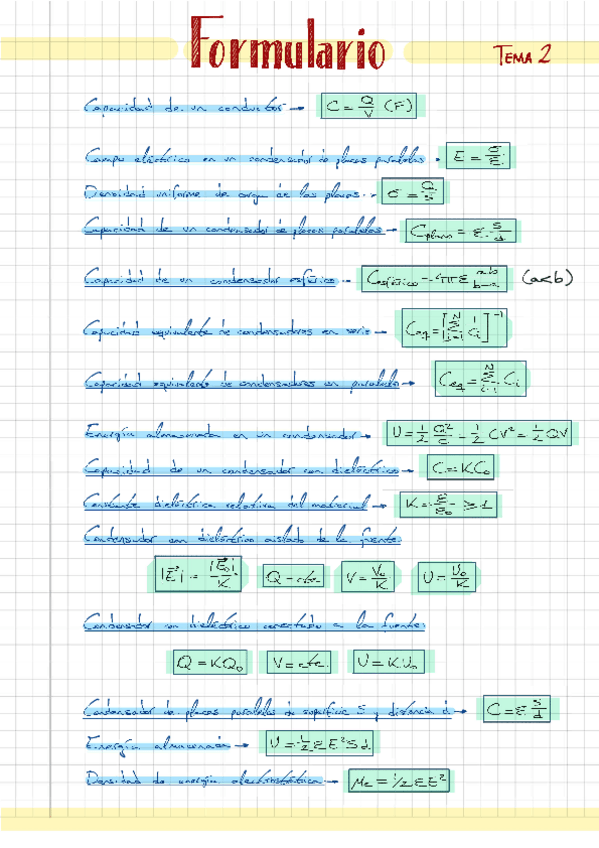 Formulario
TEMA 2
Capacidad de un conductor → C = Q/V (F)
Campo eléctrico en un condensador de placas paralelas → E = σ/ε
Densidad uniforme de carga de las placas → σ = Q/S
Capacidad de un condensador de placas paralelas → Cplano = ε · S/d
Capacidad de un condensador esférico → Cesférico = 4πε ab/b-a (a<b)
Capacidad equivalente de condensadores en serie → Ceq = [∑ᴺᵢ₌₁ 1/Cᵢ]⁻¹
Capacidad equivalente de condensadores en paralelo → Ceq = ∑ᴺᵢ₌₁ Cᵢ
Energía almacenada en un condensador → U = 1/2 Q²/C = 1/2 CV² = 1/2 QV
Capacidad de un condensador con dieléctrico → C = KC₀
Constante dieléctrica relativa del material → K = ε/ε₀ ≥ 1
Condensador con dieléctrico aislado de la fuente
|E⃗| = |E⃗₀|/K Q = cte. V = V₀/K U = U₀/K
Condensador con dieléctrico conectado a la fuente
Q = KQ₀ V = cte. U = KU₀
Condensador de placas paralelas de superficie S y distancia d → C = ε S/d
Energía almacenada → U = 1/2 εE²Sd
Densidad de energía electrostática → μE = 1/2 εE²